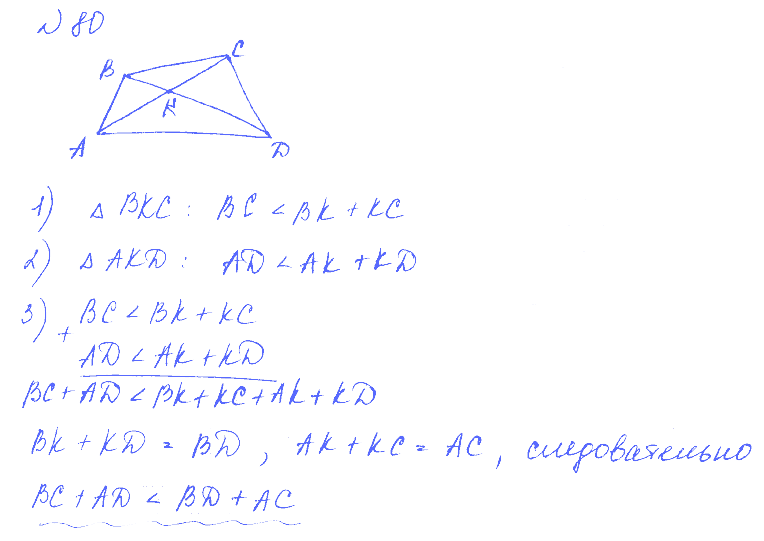 № 80
B
C
K
A
D
1) △ BKC : BC < BK + KC
2) △ AKD : AD < AK + KD
3) BC < BK + KC
+
AD < AK + KD
BC + AD < BK + KC + AK + KD
BK + KD = BD , AK + KC = AC , следовательно
BC + AD < BD + AC